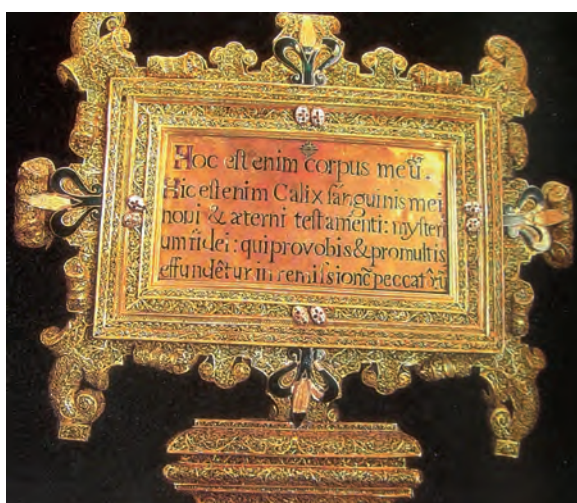 Hoc est enim corpus meũ.
Hic est enim Calix sãguinis mei
noui & æterni testamenti: mysteri
um fidei: qui pro vobis & pro multis
effundẽtur in remissionẽ peccatorũ